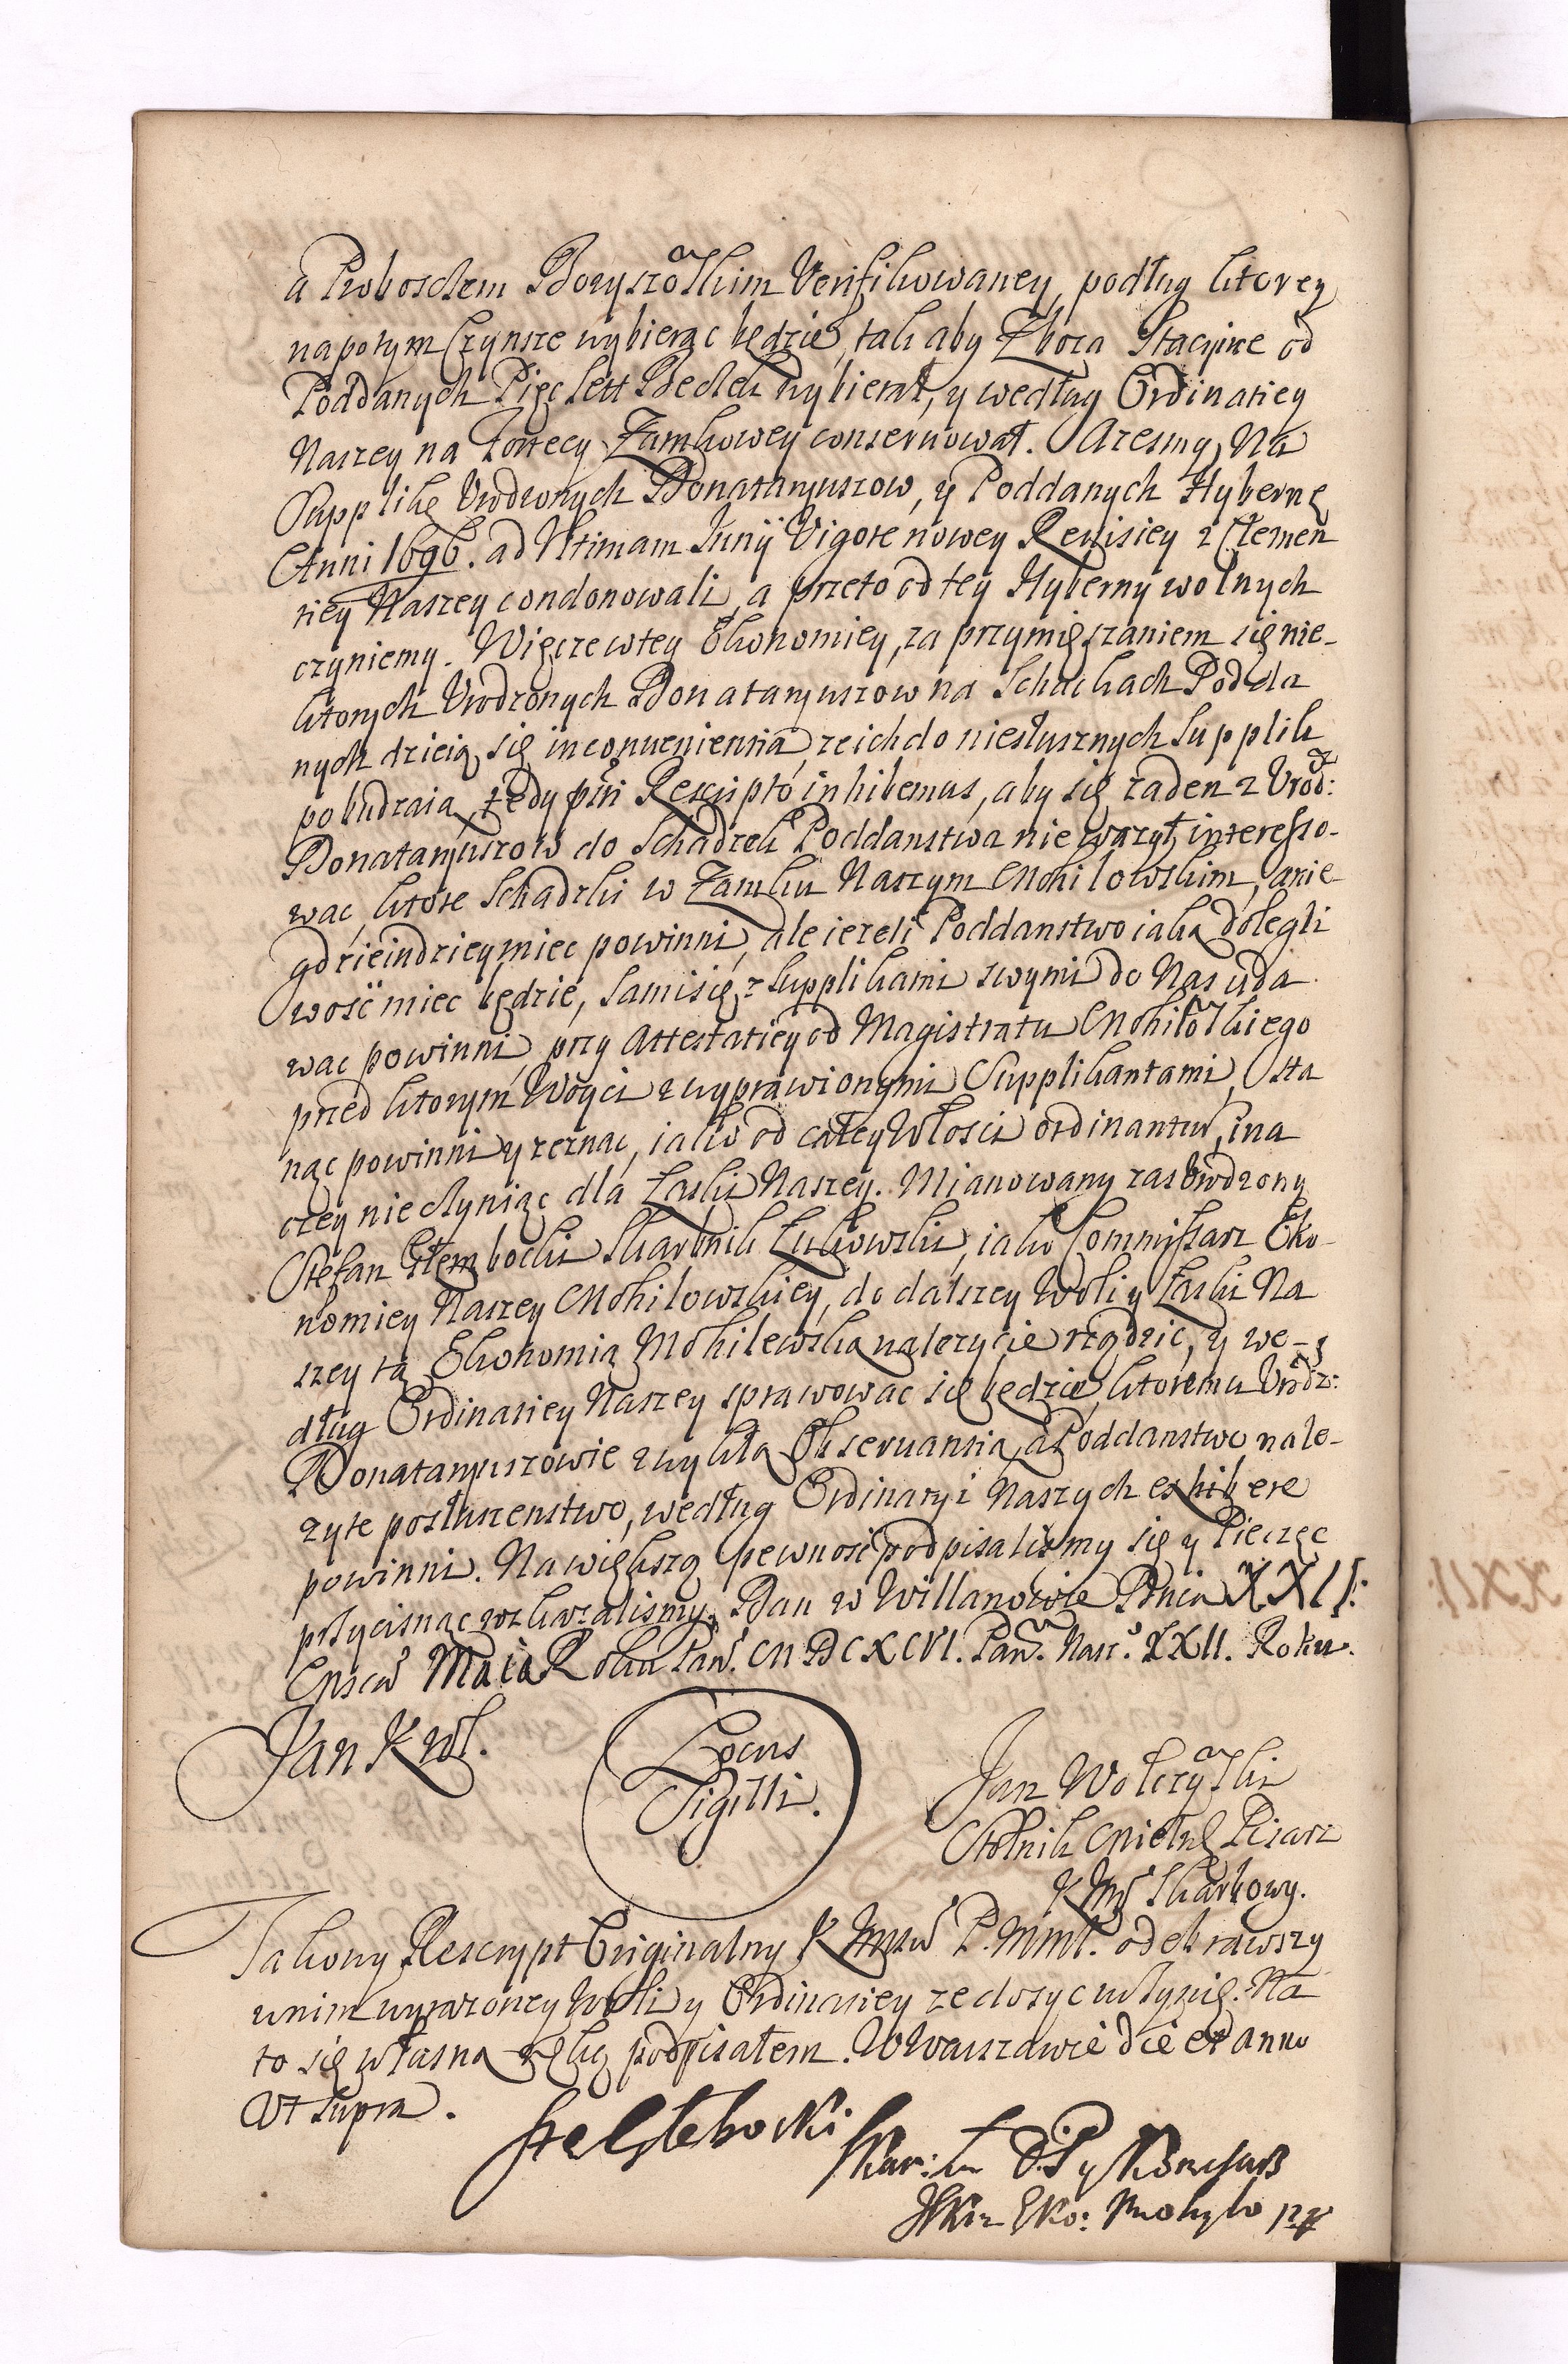 a Proboscżem Boryszoskim Verifikowaney, podług ktorey
napotym Czynsze wybierac będzie, tak aby Zboza Stacyine od
Poddanych Pięc Sett Beczek wybierał, y według Ordinatiey
Naszey na Fortecy Zamkowey conserwował. A zesmy Na
Supplikę Urodzonych Donataryuszow, y Poddanych Hybernę
Anni 1696. ad Ultimam Junij Vigore nowey Rewisiey z Clemen
tiey Naszey condonowali, a przeto od tey Hyberny wolnych
czyniemy. Więc ze w tey Ekonomiey, za przymięszaniem się nie-
ktorych Urodzonych Donataryuszow na Schackach Podda
nych dzieią się inconvenientia, ze ich do niesłusznych Supplik
pobudzaią, tedy pñti Rescripto inhibemus, aby się zaden z Urod:
Donataryuszow do Schadzek Poddanstwa nie wazył interesso-
wac, ktore Schadzki w Zamku Naszym Mohilowskim, a nie
gdzieindziey miec powinni, ale iezeli Poddanstwo iaką dolegli
wość miec będzie, Sami się z Supplikami swymi do Nas uda
wac powinni, przy Attestatiey od Magistratu Mohiloskiego
przed ktorym Woyci z wyprawionymi Supplikantami, sta
nąc powinni y zeznac, iako od całey Włosci ordinantur, ina
czey nie czyniąc dla Łaski Naszey. Mianowany zas Urodzony
Stefan Głembocki Skarbnik Łukowski, iako Commissarz Eko-
nomiey Naszey Mohilowskiey, do dalszey Woli y Łaski Na
szey tą Ekonomią Mohilewską nalezycie rządzic, y we-
dług Ordinatiey Naszey sprawowac się będzie, ktoremu Urodz:
Donataryuszowie zwykłą Observantią, a Poddanstwo nale-
zyte posłuszenstwo, według Ordinacyi Naszych exhibere
powinni. Na większą pewność podpisalismy się y Pieczęc
przycisnąc rozkazalismy. Dan w Willanowie Dnia XXII:
Mscã Maia Roku Pań. MDCXCVI. Pañ. Nasz. XXII. Roku.
Jan Krol.
Locus
Sigilli.
Jan Wołczyski
Stolnik Pisarz
K Mci Skarbowy.
Takowy Rescrypt Originalny K Jmści P. Mmł. odebrawszy
w nim wyrazoney Woli y Ordinatiey ze dosyc uczynię. Na
to się własną ręką podpisałem. W Warszawie die et anno
Ut supra.
Głebocki
Skar:
Eko: